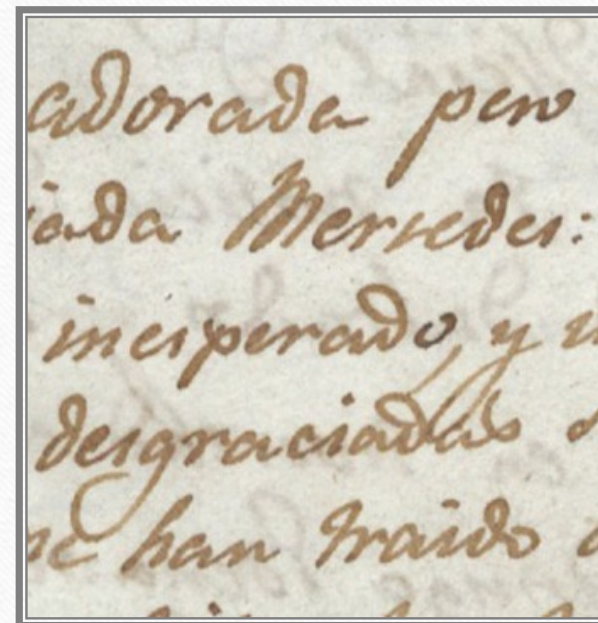 adorada pero
iada Mersedes:
inesperado, y
desgraciadas
me han traido